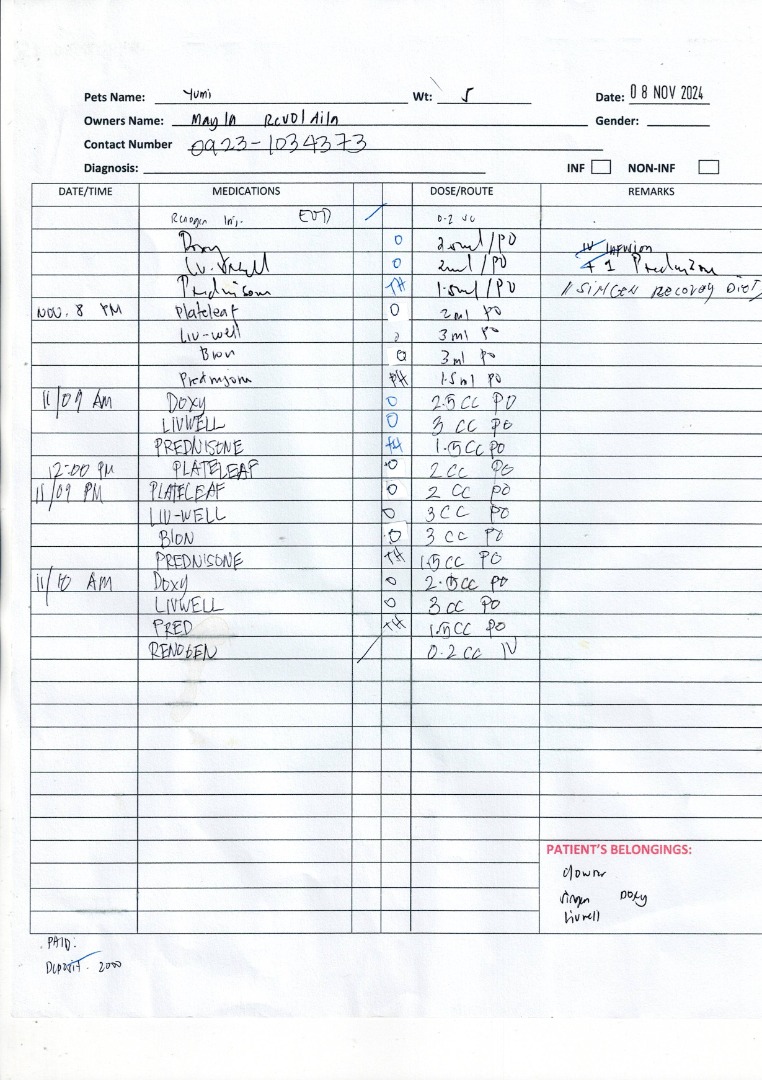 Pets Name: Yumi Wt: 5 Date: 08 NOV 2024
Owners Name: Mayla Gender:
Contact Number 0923-1034373
Diagnosis: INF NON-INF
DATE/TIME MEDICATIONS DOSE/ROUTE REMARKS
Renogen Inj. EOD 0.2
Doxy O 2.5ml/PO IV Infusion
Liv-well O 2ml/PO + 1 Prednisone
Prednisone TH 1.5ml/PO 1 SIMGEN RECOVERY DIET
NOV. 8 PM Plateleaf O 2ml PO
Liv-well 3ml PO
Bion O 3ml PO
Prednisone PH 1.5ml PO
11/09 AM DOXY O 2.5CC PO
LIVWELL O 3 CC PO
PREDNISONE TH 1.5CC PO
12:00 PM PLATELEAF O 2 CC PO
11/09 PM PLATELEAF O 2 CC PO
LIV-WELL O 3CC PO
BION O 3 CC PO
PREDNISONE TH 1.5CC PO
11/10 AM DOXY O 2.5CC PO
LIVWELL O 3 CC PO
PRED TH 1.5CC PO
RENOGEN 0.2 CC IV
PATIENT'S BELONGINGS:
Doxy
Livwell
PAID:
Deposit - 2000